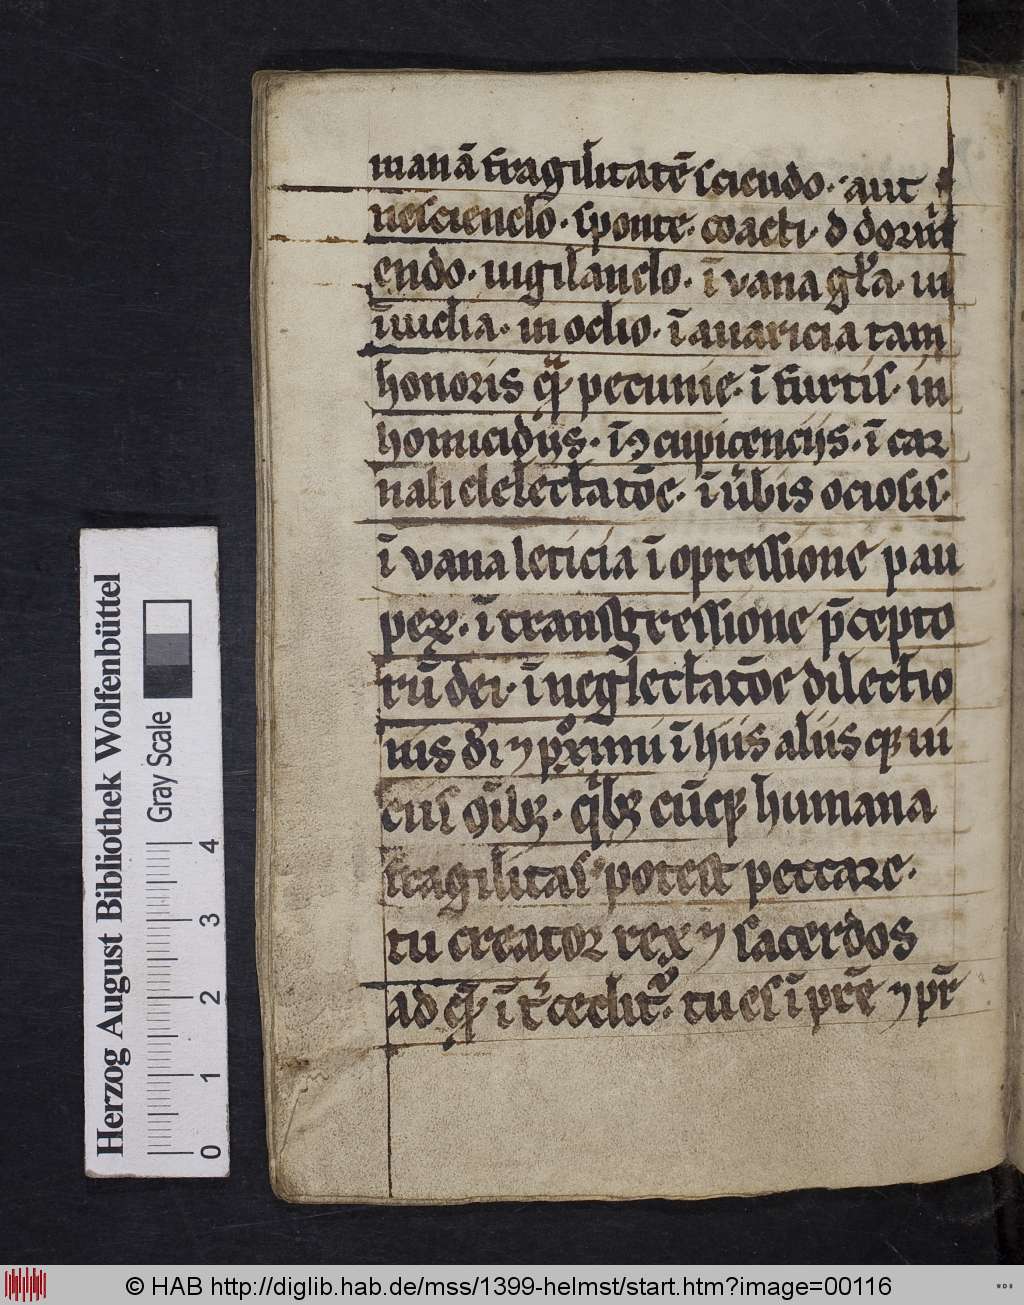 manā fragilitatē sciendo. aut
nesciendo. sponte. coacti. d dormi
endo. uigilando. ī vana glīa. in
īuidia. in odio. ī auaricia tam
honoris q̄ pecunie. ī furtis. in
homicidijs. ī ꝯcupicencijs. ī car
nali delectatōe. ī ūbis ociosis.
ī vana leticia ī opressione pau
peꝝ. ī transgressione p̄cepto
rū dei. ī neglectatōe dilectio
nis di ⁊ pͦximi ī hiis aliis qꝫ ui
ciis oīibꝫ. qͥbꝫ cūqꝫ humana
fragilitas potest peccare.
tu creator rex ⁊ sacerdos
ad qē ī tͥ cedit᷑. tu es ī pr̄e ⁊ pr̄
Herzog August Bibliothek Wolfenbüttel
Gray Scale
0 1 2 3 4
© HAB http://diglib.hab.de/mss/1399-helmst/start.htm?image=00116